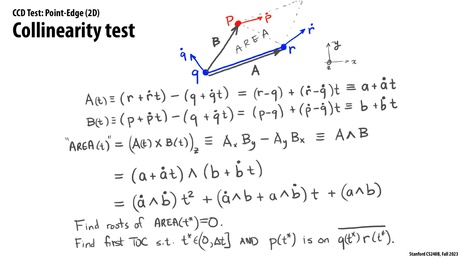 CCD Test: Point-Edge (2D)
Collinearity test
p ṗ
B AREA
ṙ
q̇ r y
q A z x
A(t) ≡ (r + ṙt) − (q + q̇t) = (r−q) + (ṙ−q̇)t ≡ a + ȧt
B(t) ≡ (p + ṗt) − (q + q̇t) = (p−q) + (ṗ−q̇)t ≡ b + ḃt
"AREA(t)" = (A(t) × B(t))_z ≡ A_x B_y − A_y B_x ≡ A ∧ B
= (a + ȧt) ∧ (b + ḃt)
= (ȧ ∧ ḃ) t² + (ȧ ∧ b + a ∧ ḃ) t + (a ∧ b)
Find roots of AREA(t*)=0.
Find first TOC s.t. t*∈(0,Δt] AND p(t*) is on q(t*) r(t*).
Stanford CS248B, Fall 2023